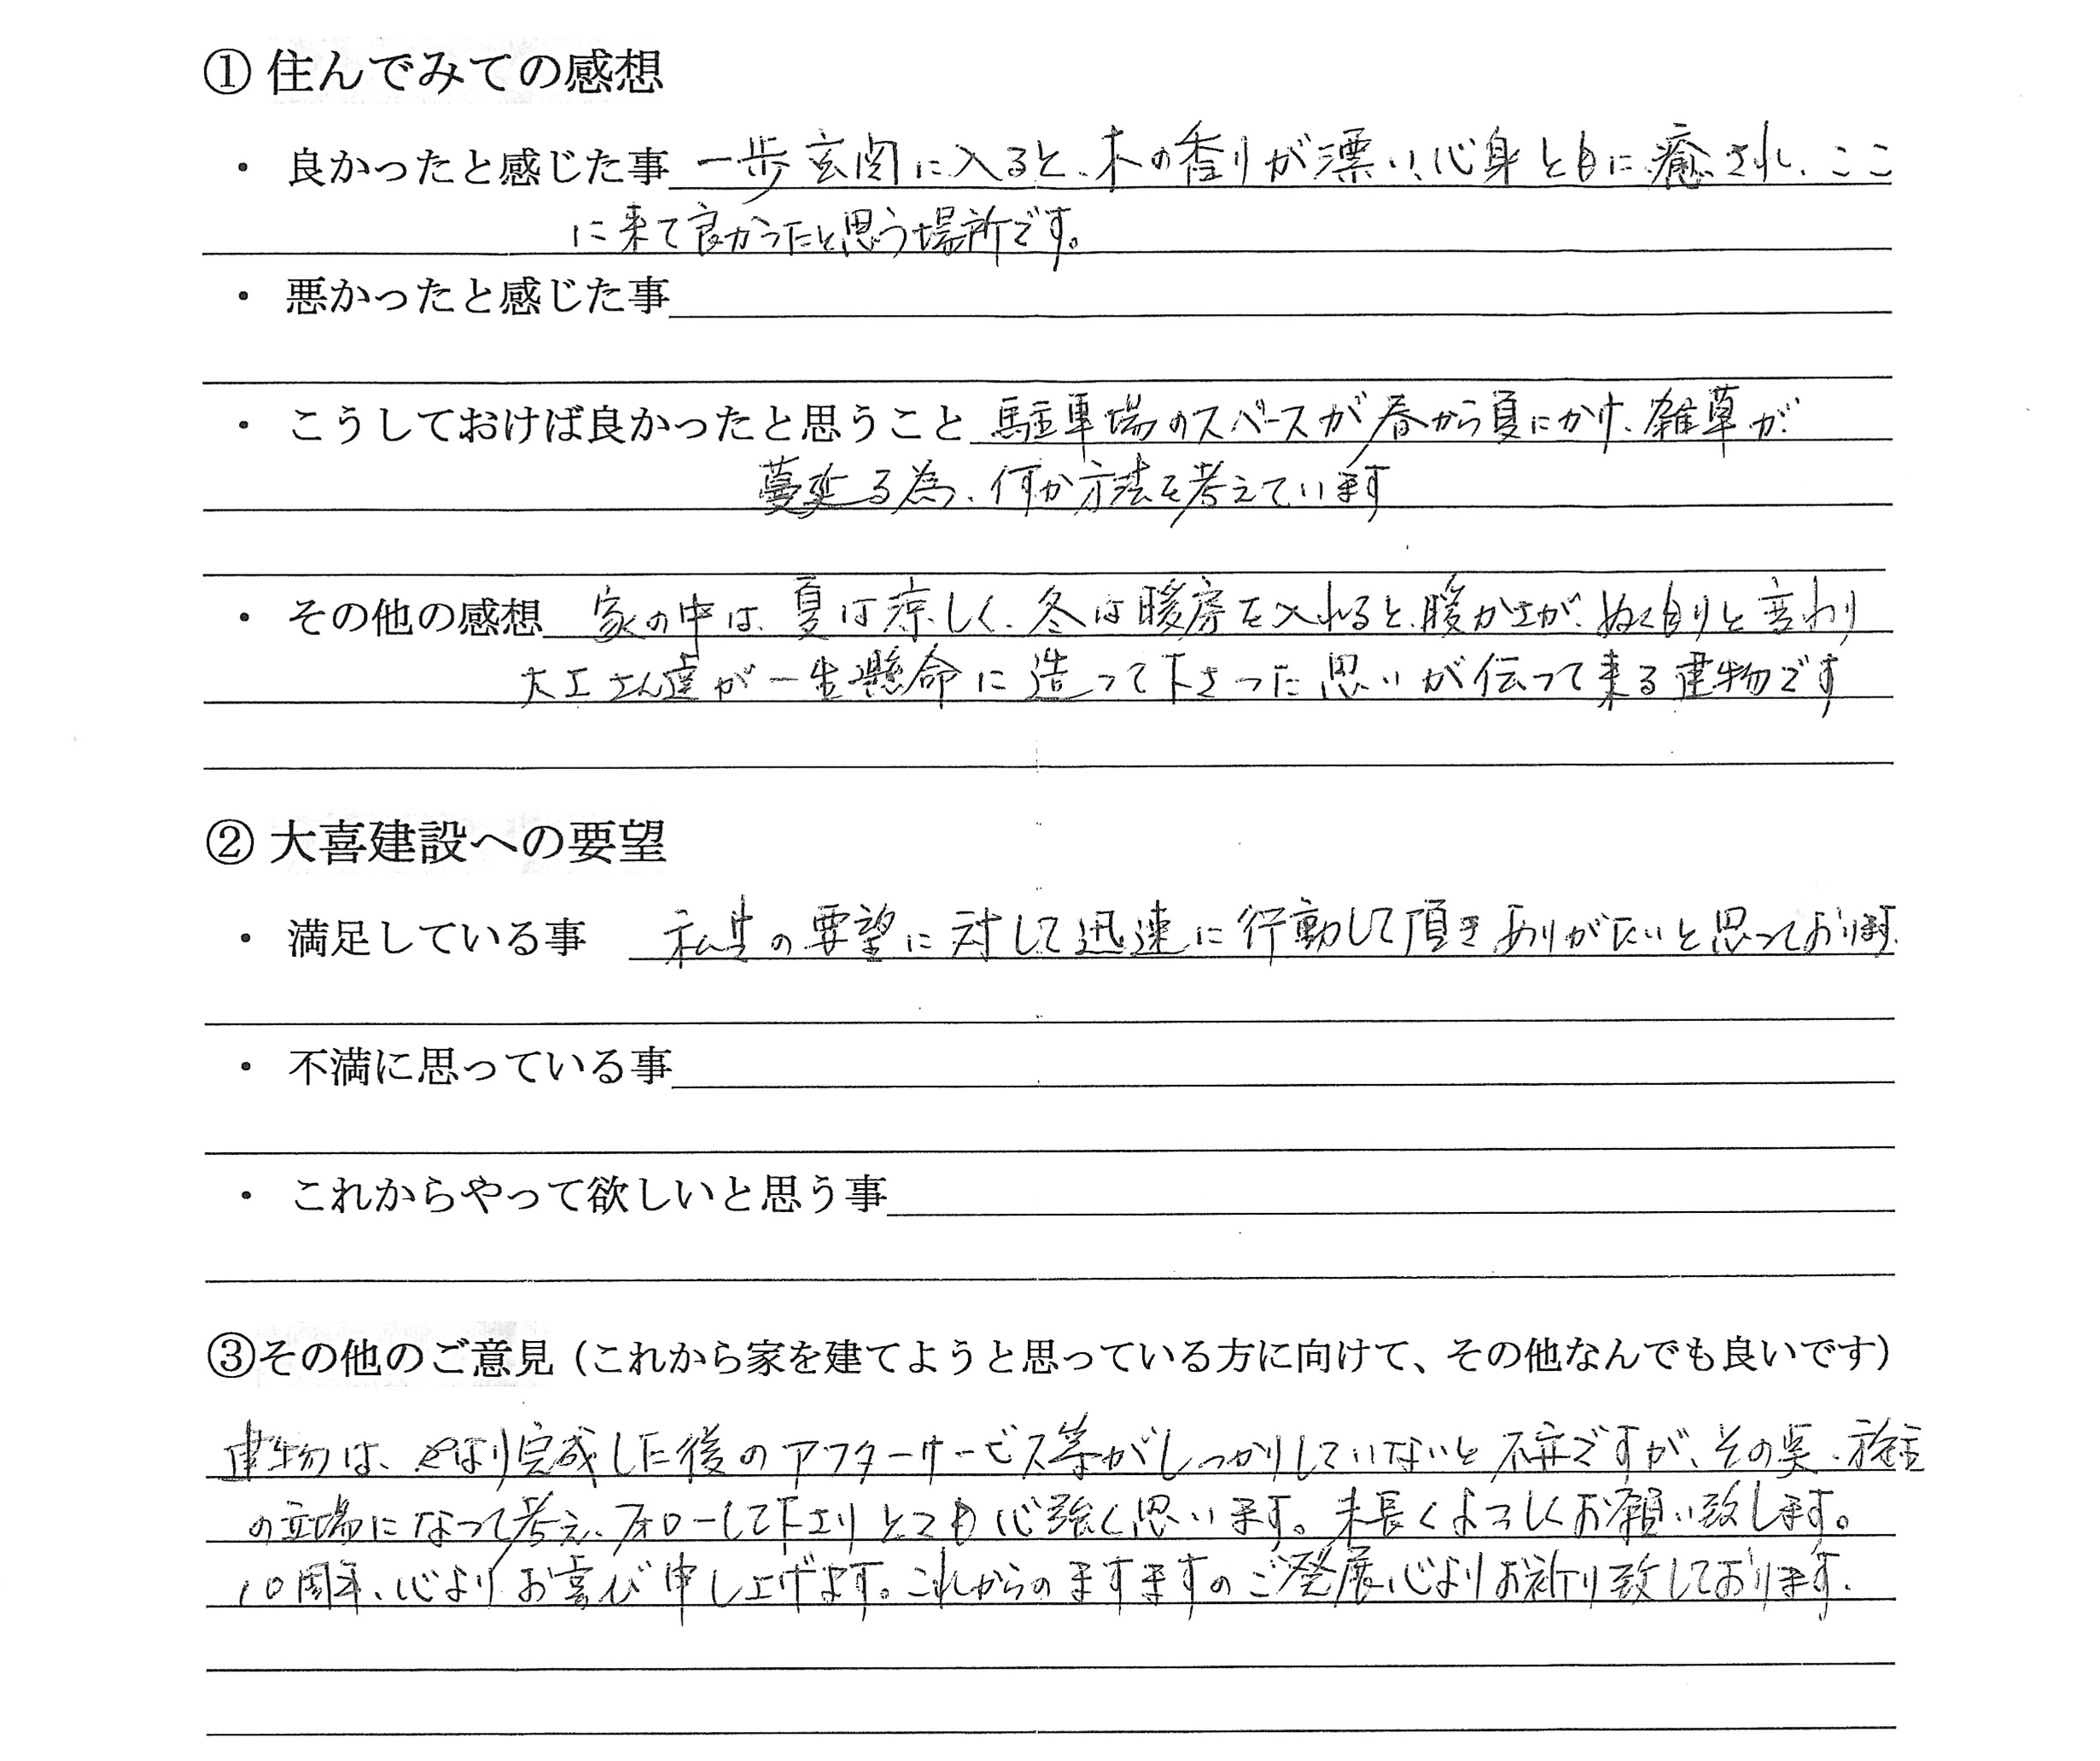 ① 住んでみての感想
・ 良かったと感じた事 一歩玄関に入ると、木の香りが漂い、心身ともに癒され、ここ
に来て良かったと思う場所です。
・ 悪かったと感じた事
・ こうしておけば良かったと思うこと 駐車場のスペースが春から夏にかけ、雑草が
蔓延る為、何か方法を考えています
・ その他の感想 家の中は、夏は涼しく、冬は暖房を入れると、暖かさが、と変わり
大工さん達が一生懸命に造って下さった思いが伝って来る建物です
② 大喜建設への要望
・ 満足している事 私共の要望に対して迅速に行動して頂きありがたいと思っております。
・ 不満に思っている事
・ これからやって欲しいと思う事
③その他のご意見（これから家を建てようと思っている方に向けて、その他なんでも良いです）
建物は、やはり完成した後のアフターサービス等がしっかりしていないと不安ですが、その点、施主
の立場になって考え、フォローして下さりとても心強く思います。末長くよろしくお願い致します。
10周年、心よりお喜び申し上げます。これからのますますのご発展心よりお祈り致しております。